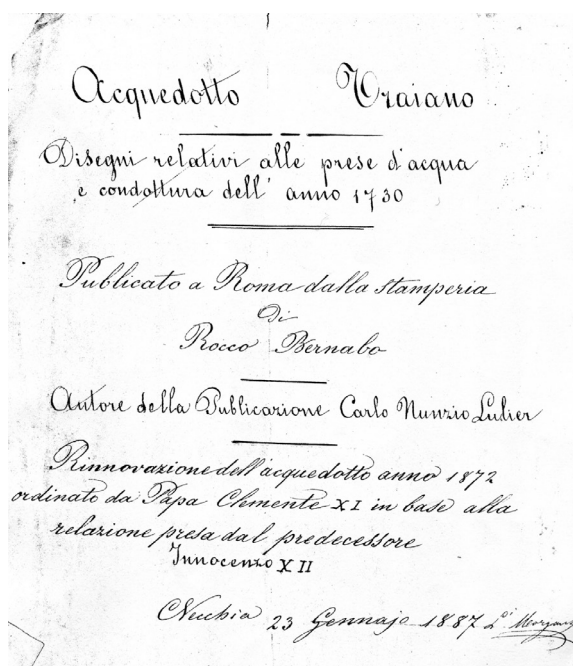 Acquedotto Traiano
Disegni relativi alle prese d'acqua
e condottura dell' anno 1730
Publicato a Roma dalla stamperia
Di
Rocco Bernabo
Autore della Publicazione Carlo Nunzio Lulier
Rinnovazione dell'acquedotto anno 1872
ordinato da Papa Clemente XI in base alla
relazione presa dal predecessore
Innocenzo XII
CVecchia 23 Gennajo 1887